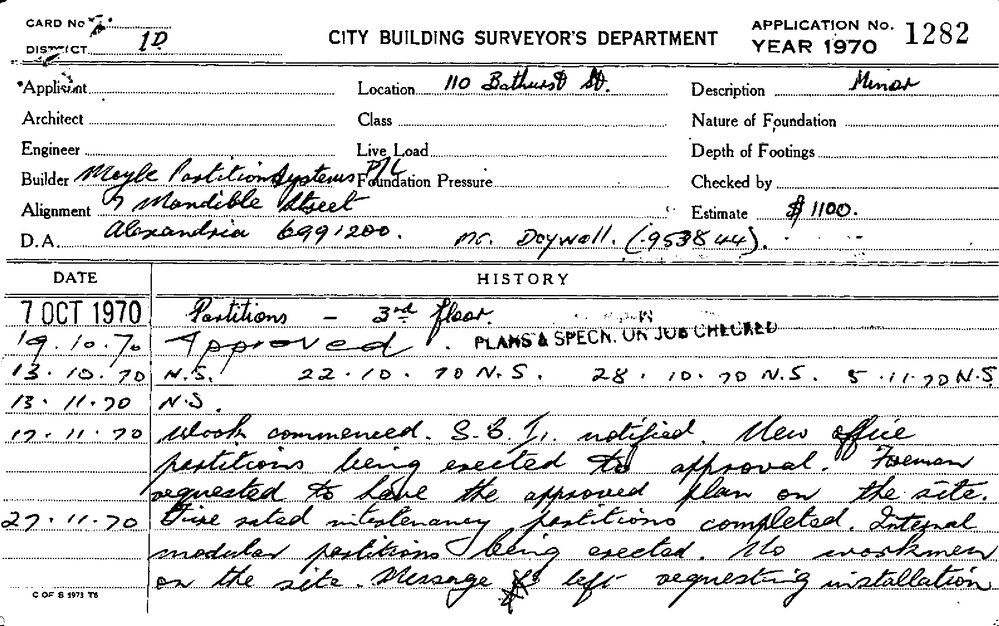 CARD No
DISTRICT 1D
CITY BUILDING SURVEYOR'S DEPARTMENT
APPLICATION No. 1282
YEAR 1970
Applicant
Location 110 Bathurst St.
Description Minor
Architect
Class
Nature of Foundation
Engineer
Live Load
Depth of Footings
Builder Mayle Partition Systems P/L
Foundation Pressure
Checked by
Alignment 7 Mandible Street
Estimate $1100.
D.A. Alexandria 6991200. Mr. Doywall. (953844).
DATE HISTORY
7 OCT 1970 Partitions – 3rd floor.
19.10.70 Approved. PLANS & SPECN. ON JOB CHECKED
13.10.70 N.S. 22.10.70 N.S. 28.10.70 N.S. 5.11.70 N.S
13.11.70 N.S.
17.11.70 Work commenced. S.B.I. notified. New office
partitions being erected to approval. Foreman
requested to have the approved plan on the site.
27.11.70 Fire rated intertenancy partitions completed. Internal
modular partitions being erected. No workmen
on the site. Message left requesting installation
C OF S 1973 T6